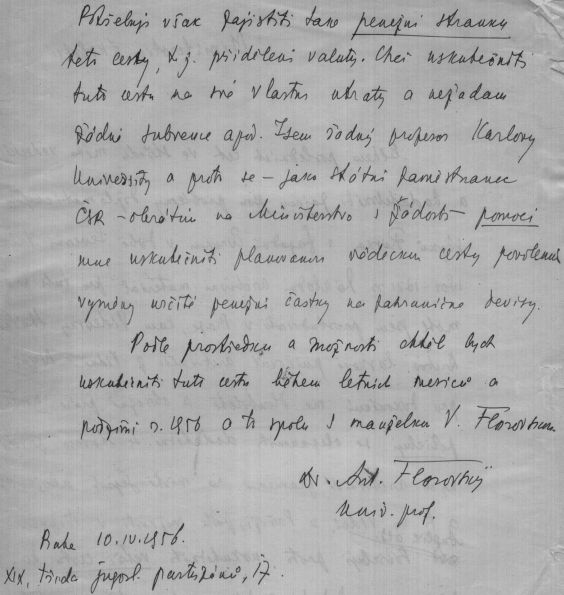 Potřebuji však zajistiti tako peněžní stranku
teto cesty, t.j. přidělení valuty. Chci uskutečniti
tuto cestu na své vlastní utraty a nežadam
žádné subvence apod. Jsem řádný profesor Karlovy
University a proto se – jako státní zaměstnanec
ČSR – obrátím na Ministerstvo s žádostí – pomoci
mne uskutečniti planovanou vědeckou cestu povolením
výměny určité peněžní častky na zahraniční devizy.
Podle prostředku a možnosti chtěl bych
uskutečniti tuto cestu během letních mesiců a
podzimu r. 1956 a to spolu s manželkou V. Florovskou.
Dr. Ant. Florovský
Univ. prof.
Praha 10.IV.1956.
XIX, třída jugosl. partizánů, 17.